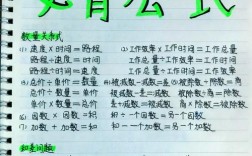 必背公式
数量关系式
(1) 速度×时间=路程 (2) 工作效率×工作时间=工作总量
路程÷时间=速度 工作总量÷工作效率=工作时间
路程÷速度=时间 工作总量÷工作时间=工作效率
(3) 总价÷单价=数量 (4) 被减数-减数=差 (5) 被除数÷除数=商
总价÷数量=单价 被减数-差=减数 被除数÷商=除数
单价×数量=总价 差+减数=被减数 商×除数=被除数
(6) 因数×因数=积 积÷一个因数=另一个因数
(7) 加数+加数=和 和-一个加数=另一个加数
和差问题